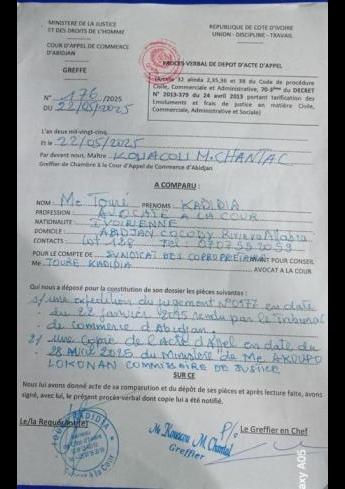 MINISTERE DE LA JUSTICE
ET DES DROITS DE L'HOMME
COUR D'APPEL DE COMMERCE
D'ABIDJAN
GREFFE
REPUBLIQUE DE COTE D'IVOIRE
UNION - DISCIPLINE - TRAVAIL
PROCES-VERBAL DE DEPOT D'ACTE D'APPEL
(Article 32 alinéa 2,35,36 et 38 du Code de procédure
Civile, Commerciale et Administrative, 70-3ème du DECRET
N° 2013-279 du 24 avril 2013 portant tarification des
Emoluments et frais de justice en matière Civile,
Commerciale, Administrative et Sociale)
N° 176 /2025
DU 22/05/2025
L'an deux mil-vingt-cinq,
Et le 22/05/2025
Par devant nous, Maître KOUACOU M. CHANTAL
Greffier de Chambre à la Cour d'Appel de Commerce d'Abidjan
A COMPARU :
NOM : Me Touré PRENOMS KADIDIA
PROFESSION : AVOCATE A LA COUR
NATIONALITE : IVOIRIENNE
DOMICILE : ABIDJAN COCODY Riviera
CONTACTS : Lot 128 Tel :
POUR LE COMPTE DE SYNDICAT DES COPROPRIETAIRES POUR CONSEIL
Me TOURE KADIDIA AVOCAT A LA COUR
Qui nous a déposé pour la constitution de son dossier les pièces suivantes :
1/ une expédition du jugement N°0177 en date
du 22 janvier 2025 rendu par le Tribunal
de Commerce d'Abidjan.
2/ une Copie de l'Acte d'Appel en date du
28 Avril 2025 du Ministère de Me AKOUPO
LOKONAN COMMISSAIRE DE JUSTICE
SUR CE
Nous lui avons donné acte de sa comparution et du dépôt de ses pièces et après lecture faite, avons
signé, avec lui, le présent procès-verbal dont copie lui a été notifié.
Le/la Requérant(e)
P/o Le Greffier en Chef
Me Kouacou M. Chantal
Greffier